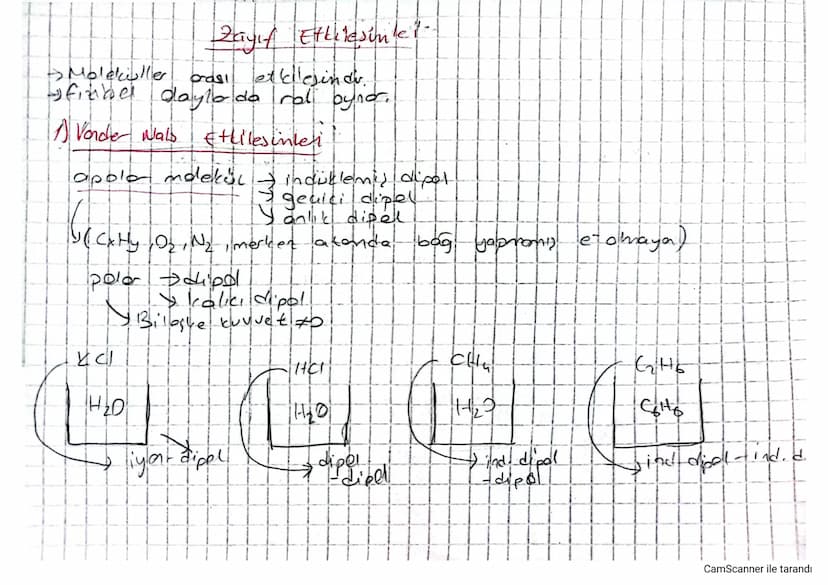 Zayıf Etkileşimler
→ Moleküller arası etkileşimdir.
→ fiziksel olaylarda rol oynar.
1) Vander Wals Etkileşimleri
apolar molekül → indüklemiş dipol
→ geçici dipol
↘ anlık dipol
↳ (CxHy, O2, N2, merkez atomda bağ yapmamış e- olmaya)
polar → dipol
↘ kalıcı dipol
↘ Bileşke kuvvet ≠0
KCl
HCl
CH4
C2H6
H2O
H2O
H2O
C6H6
→ iyon-dipol
→ dipol
-dipol
→ ind. dipol
-dipol
→ ind. dipol - ind. d
CamScanner ile tarandı